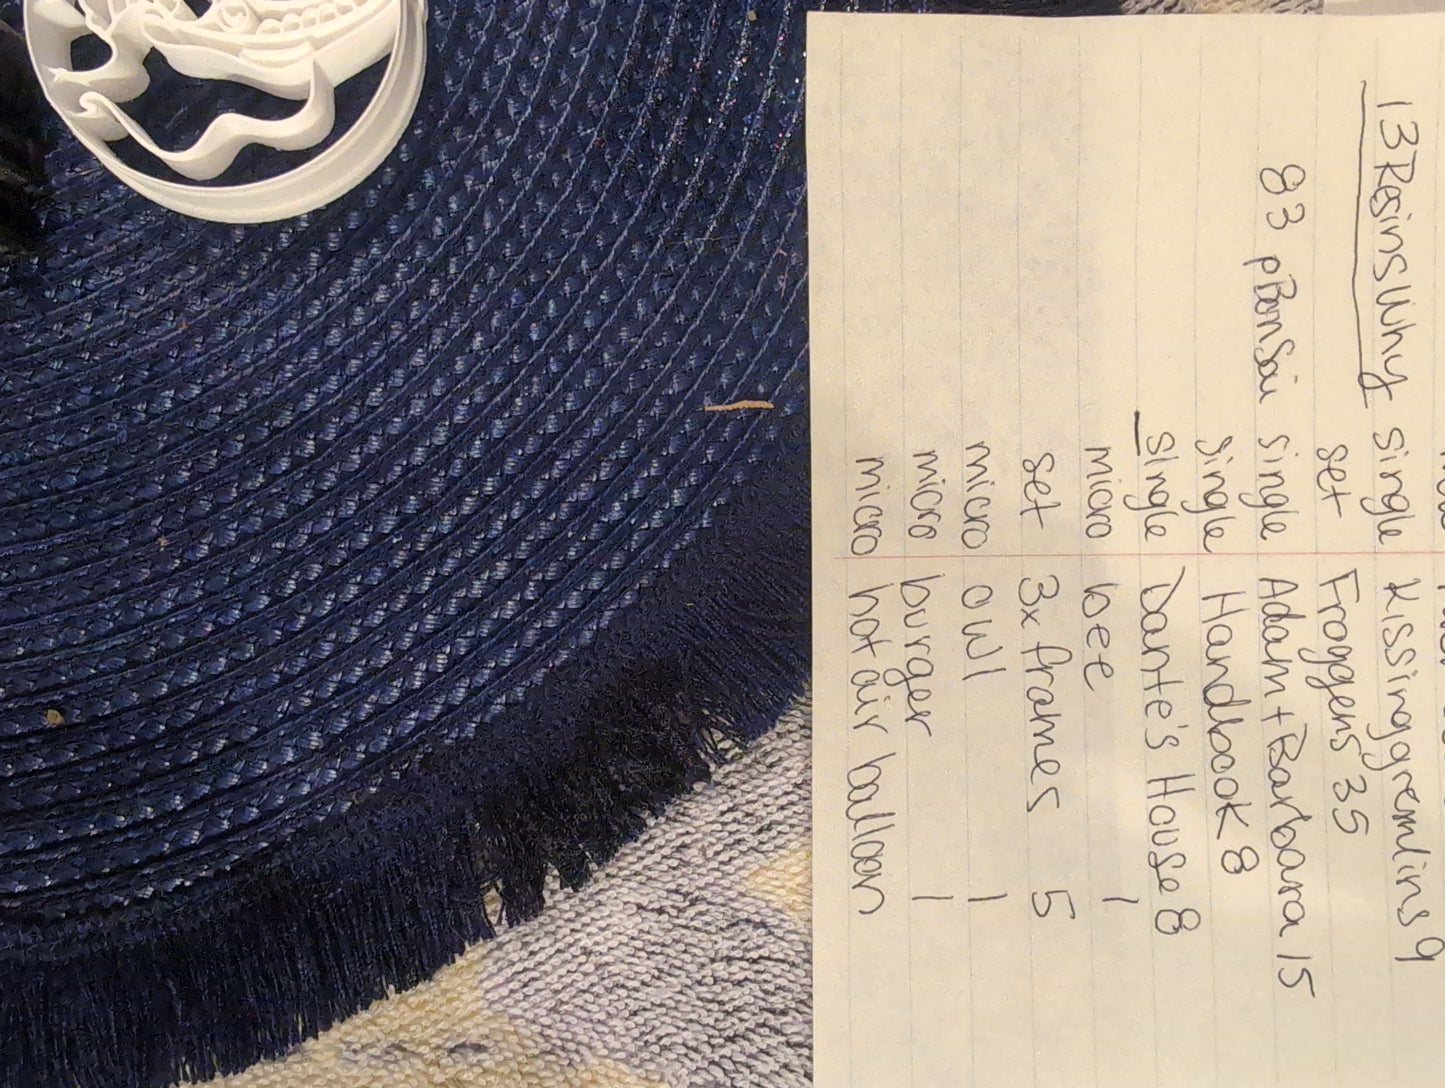 13Resins Why single Kissinggremlins 9
set Froggens 35
83 pBonSai single Adam + Barbara 15
single Handbook 8
single Dante's House 8
micro bee 1
set 3x frames 5
micro owl 1
micro burger 1
micro hot air balloon